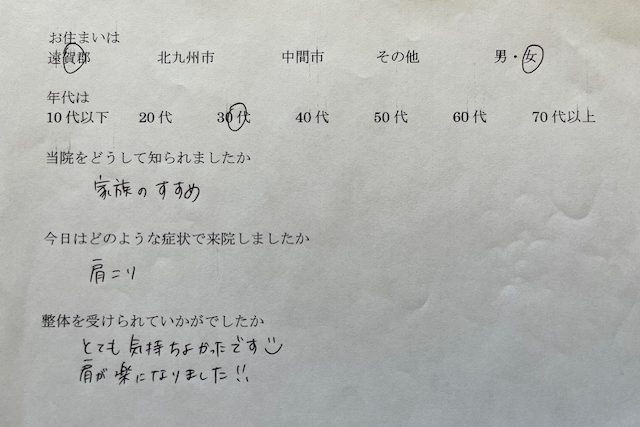 お住まいは
遠賀郡 北九州市 中間市 その他 男・女
年代は
10代以下 20代 30代 40代 50代 60代 70代以上
当院をどうして知られましたか
家族のすすめ
今日はどのような症状で来院しましたか
肩こり
整体を受けられていかがでしたか
とても気持ちよかったです
肩が楽になりました!!